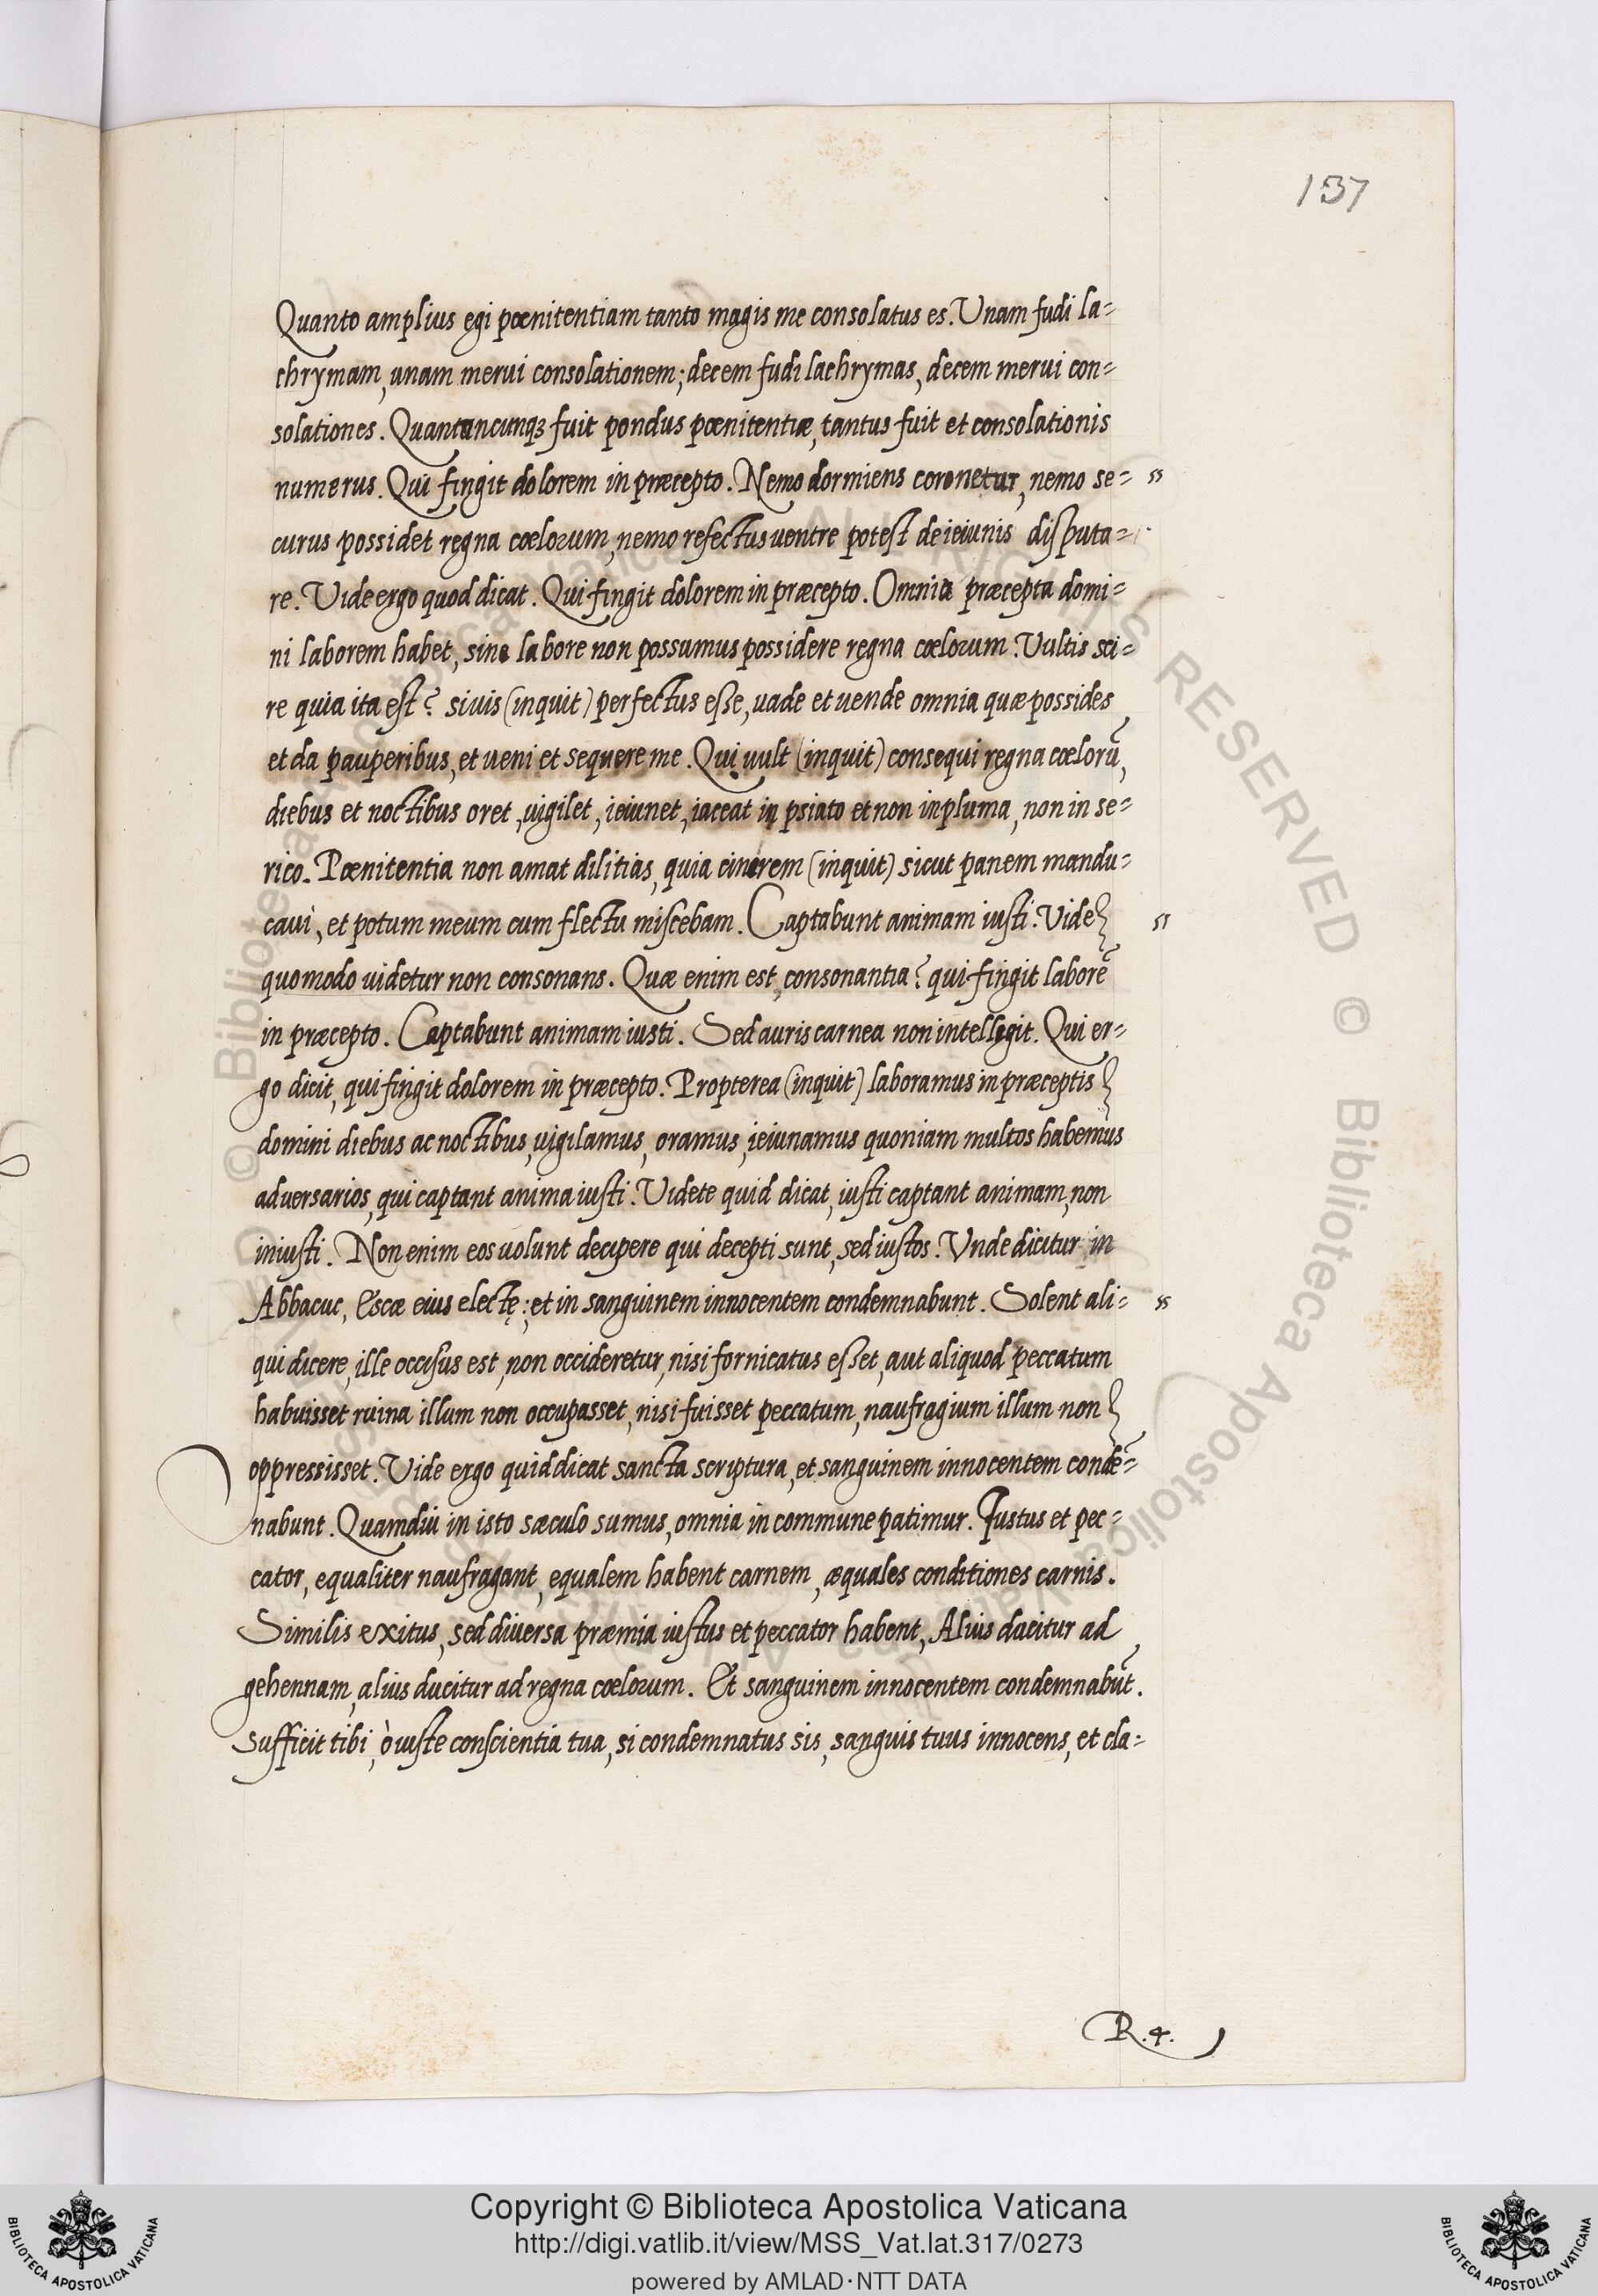 137
Quanto amplius egi pœnitentiam tanto magis me consolatus es. Unam fudi la=
chrymam, unam merui consolationem; decem fudi lachrymas, decem merui con=
solationes. Quantuncunqꝫ fuit pondus pœnitentiæ, tantus fuit et consolationis
numerus. Qui fingit dolorem in præcepto. Nemo dormiens coronetur, nemo se= "
curus possidet regna cœlorum, nemo refectus uentre potest de ieiunis disputa=
re. Vide ergo quod dicat. Qui fingit dolorem in præcepto. Omnia præcepta domi=
ni laborem habet, sine labore non possumus possidere regna cœlorum. Vultis sci=
re quia ita est? si uis (inquit) perfectus esse, uade et uende omnia quæ possides
et da pauperibus, et ueni et sequere me. Qui uult (inquit) consequi regna cœlorũ,
diebus et noctibus oret, uigilet, ieiunet, iaceat in psiato et non in pluma, non in se=
rico. Pœnitentia non amat dilitias, quia cinerem (inquit) sicut panem mandu=
caui, et potum meum cum flectu miscebam. Captabunt animam iusti. Vide "
quomodo uidetur non consonans. Quæ enim est, consonantia? qui fingit laborẽ
in præcepto. Captabunt animam iusti. Sed auris carnea non intellegit. Qui er=
go dicit, qui fingit dolorem in præcepto. Propterea (inquit) laboramus in præceptis
domini diebus ac noctibus, uigilamus, oramus, ieiunamus quoniam multos habemus
aduersarios, qui captant anima iusti. Videte quid dicat, iusti captant animam, non
iniusti. Non enim eos uolunt decipere qui decepti sunt, sed iustos. Vnde dicitur in
Abbacuc, Escæ eius electę; et in sanguinem innocentem condemnabunt. Solent ali= "
qui dicere, ille occisus est, non occideretur, nisi fornicatus esset, aut aliquod peccatum
habuisset ruina illum non occupasset, nisi fuisset peccatum, naufragium illum non
oppressisset. Vide ergo quid dicat sancta scriptura, et sanguinem innocentem condẽ=
nabunt. Quamdiu in isto sæculo sumus, omnia in commune patimur. Iustus et pec=
cator, equaliter naufragant, equalem habent carnem, æquales conditiones carnis.
Similis exitus, sed diuersa præmia iustus et peccator habent, Alius ducitur ad
gehennam, alius ducitur ad regna cœlorum. Et sanguinem innocentem condemnabũt.
Sufficit tibi, ò iuste conscientia tua, si condemnatus sis, sanguis tuus innocens, et cla=
R.4.
© Biblioteca Apostolica Vaticana ALL RIGHTS RESERVED © Biblioteca Apostolica Vaticana
Copyright © Biblioteca Apostolica Vaticana
http://digi.vatlib.it/view/MSS_Vat.lat.317/0273
powered by AMLAD·NTT DATA
BIBLIOTECA APOSTOLICA VATICANA
BIBLIOTECA APOSTOLICA VATICANA